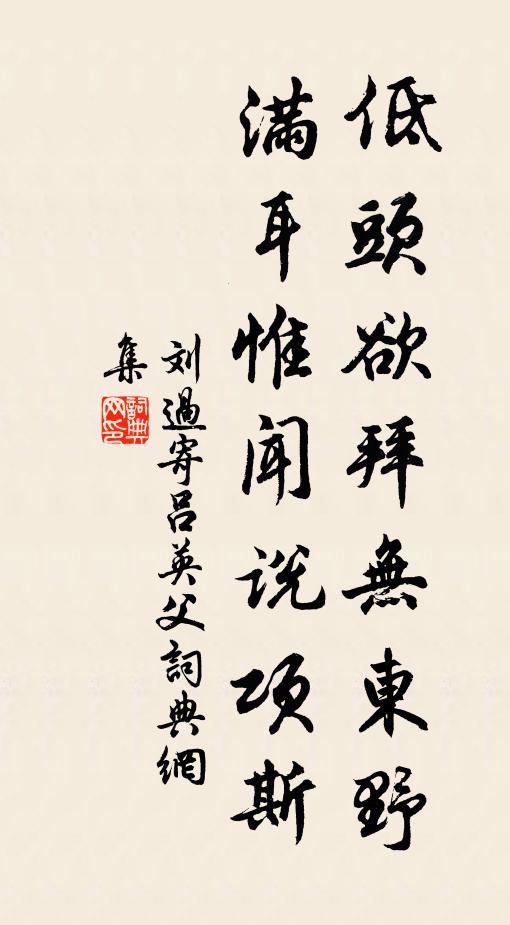 低頭欲拜無東野
滿耳惟聞說项斯
刘過寄呂英父詞典網
集
詞典網印